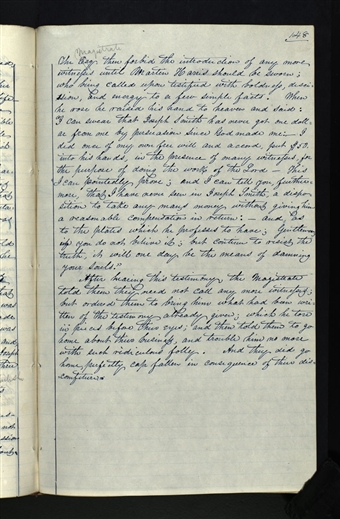 148
Magistrate
The Esqr. then forbid the introduction of any more
witnesses until Martin Harris should be sworn;
who being called upon testified with boldness, deci-
sion, and energy to a few simple facts. When
he rose he raised his hand to heaven and said:
"I can swear that Joseph Smith has never got one doll-
ar from me by persuasion since God made me: I
did once of my own free will and accord, put $50.
into his hands, in the presence of many witnesses, for
the purpose of doing the works of the Lord — This
I can pointedly prove; and I can tell you further
more, that I have never seen in Joseph Smith, a dispo-
sition to take any mans money, without giving him
a reasonable compensation in return: — and, as
to the plates which he professes to have; Gentlemen
if you do not believe it; but continue to resist the
truth, it will one day be the means of damning
your Souls."
After hearing this testimony, the Magistrate
told them they need not call any more witnesses;
but ordered them to bring him what had been wri-
ten of the testimony already given; which he tore
in pieces before their eyes; and then told them to go
home about their business, and trouble him no more
with such ridiculous folly. And they did go
home perfectly, cap fallen in consequence of their dis-
comfiture